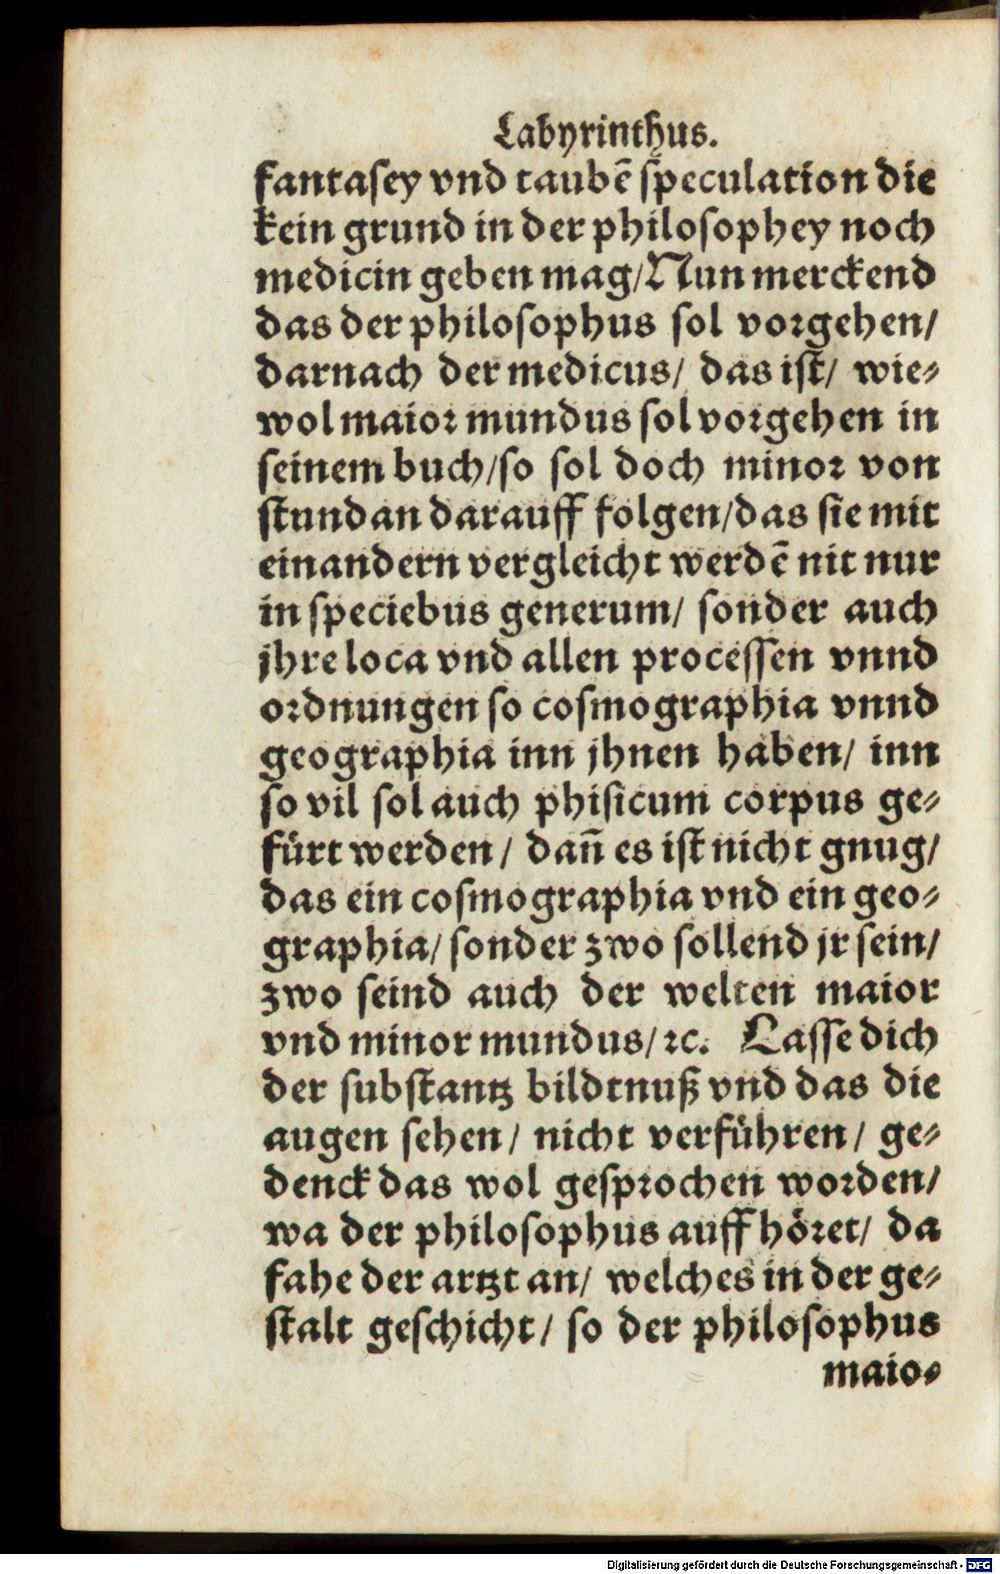 Labyrinthus.
fantasey vnd taubē speculation die
kein grund in der philosophey noch
medicin geben mag/Nun merckend
das der philosophus sol vorgehen/
darnach der medicus/ das ist/ wie-
wol maior mundus sol vorgehen in
seinem buch/so sol doch minor von
stund an darauff folgen/das sie mit
einandern vergleicht werdē nit nur
in speciebus generum/ sonder auch
jhre loca vnd allen processen vnnd
ordnungen so cosmographia vnnd
geographia inn jhnen haben/ inn
so vil sol auch phisicum corpus ge-
fürt werden/ dañ es ist nicht gnug/
das ein cosmographia vnd ein geo-
graphia/ sonder zwo sollend jr sein/
zwo seind auch der welten maior
vnd minor mundus/ꝛc. Lasse dich
der substantz bildtnuß vnd das die
augen sehen/ nicht verführen/ ge-
denck das wol gesprochen worden/
wa der philosophus auffhöret/ da
fahe der artzt an/ welches in der ge-
stalt geschicht/ so der philosophus
maio-
Digitalisierung gefördert durch die Deutsche Forschungsgemeinschaft - DFG